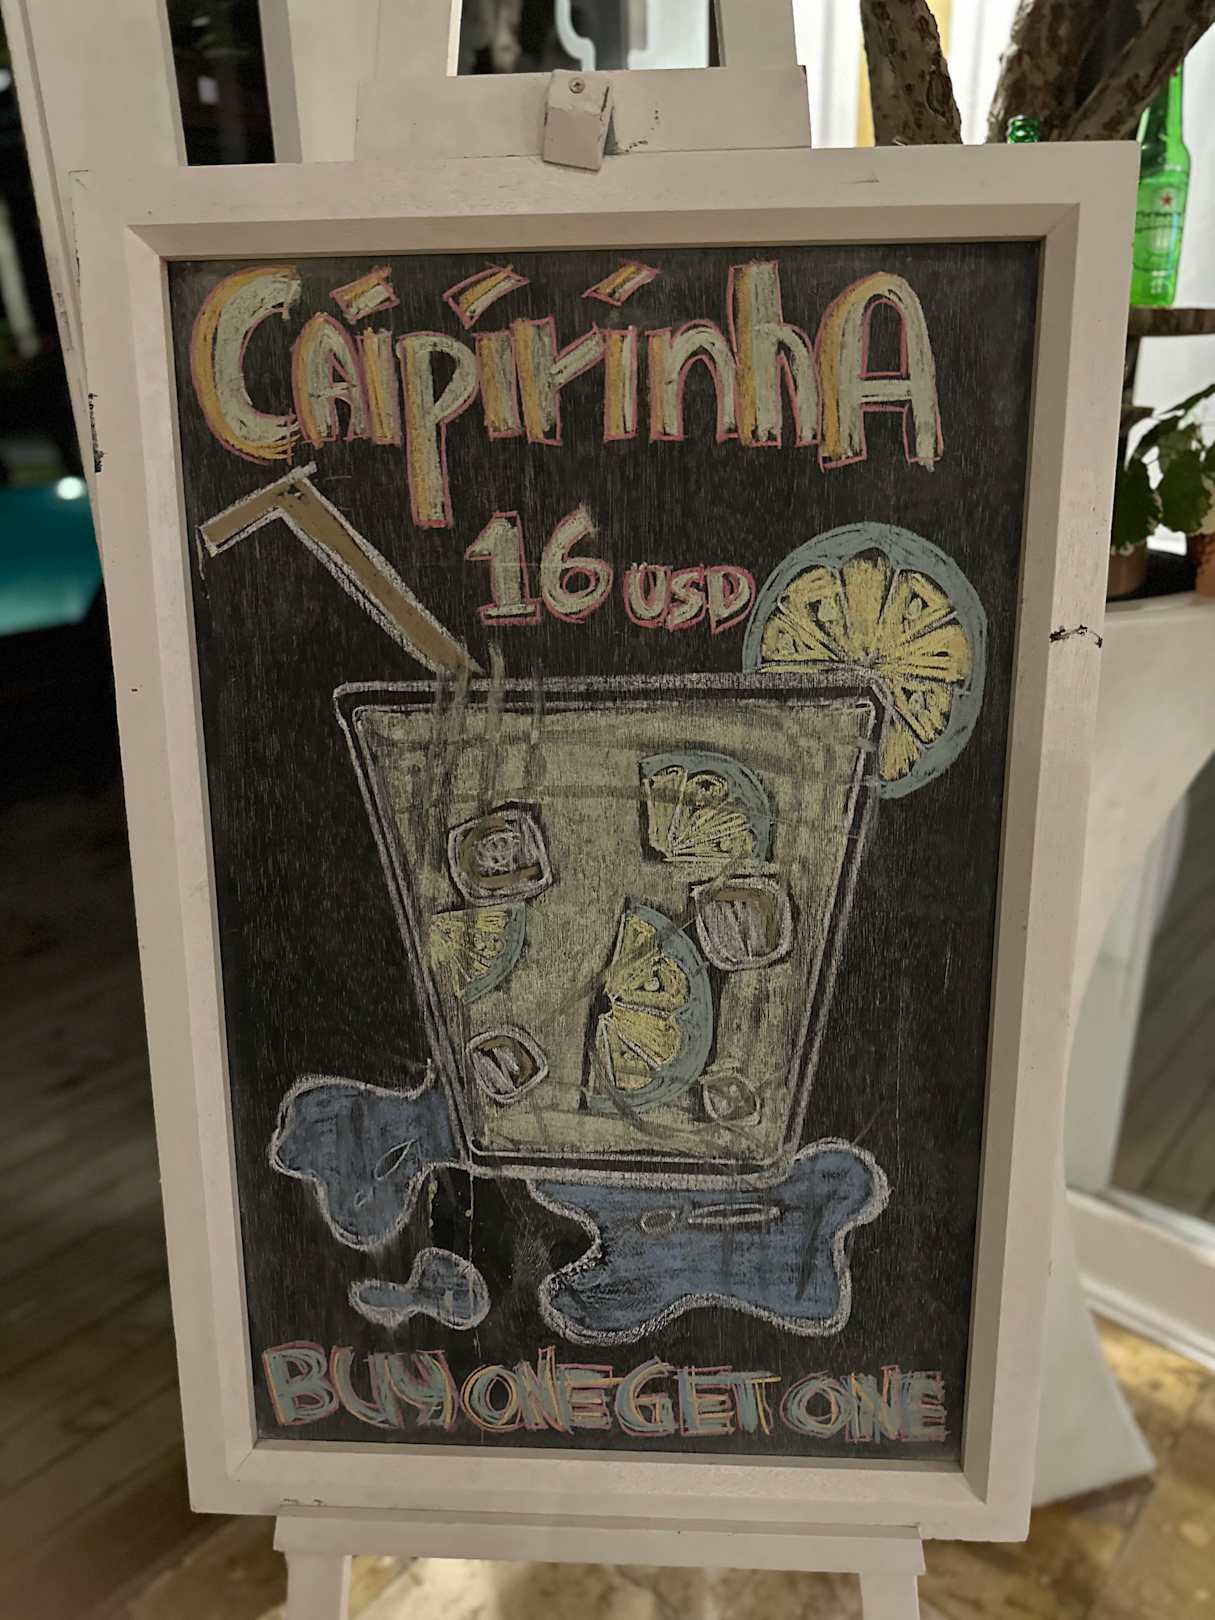 CAipirinhA
16 USD
BUY ONE GET ONE